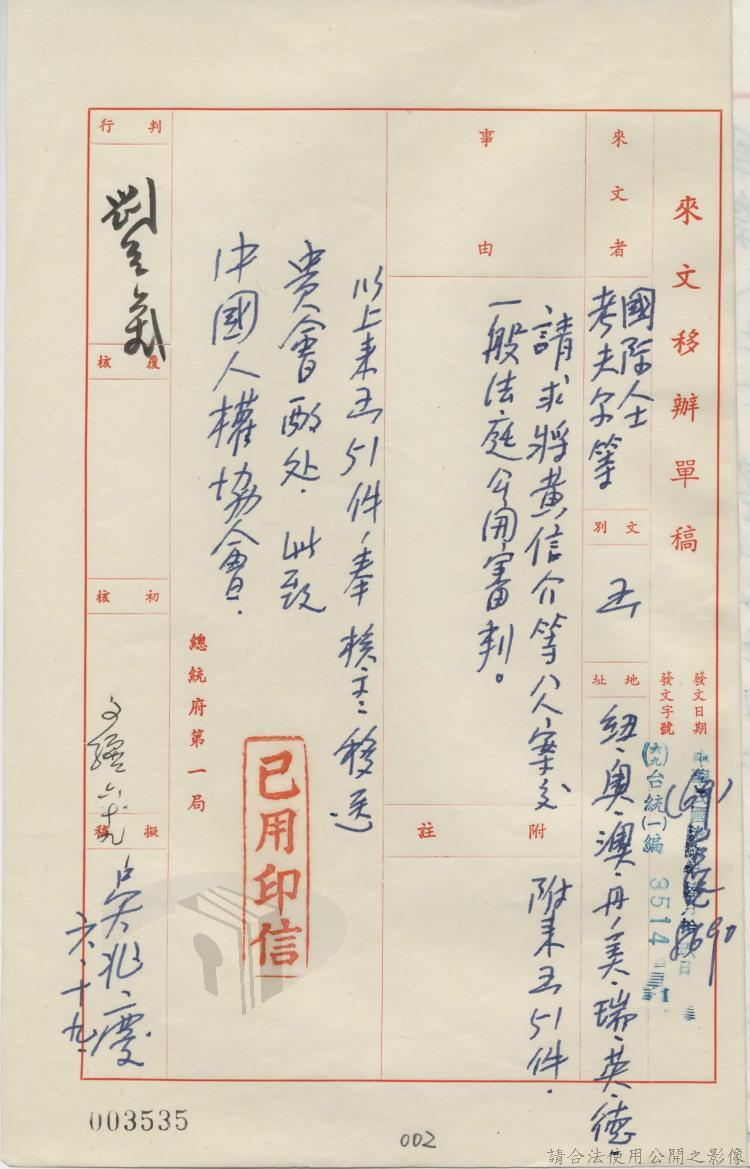 來文移辦單稿
發文日期
發文字號
(六九)台統(一)編 3514
來文者
國際人士
考夫尔等
文別
函
地址
紐、奧、澳、丹、美、瑞、英、德、
事由
請求將黃信介等八人案交
一般法庭公開審判。
附註
附來函51件.
以上來函51件,奉 核示移送
貴會酌处.此致
中國人權協會.
總統府第一局
已用印信
判行
覆核
初核
擬稿
吳兆慶
六.十九.
003535
002
請合法使用公開之影像